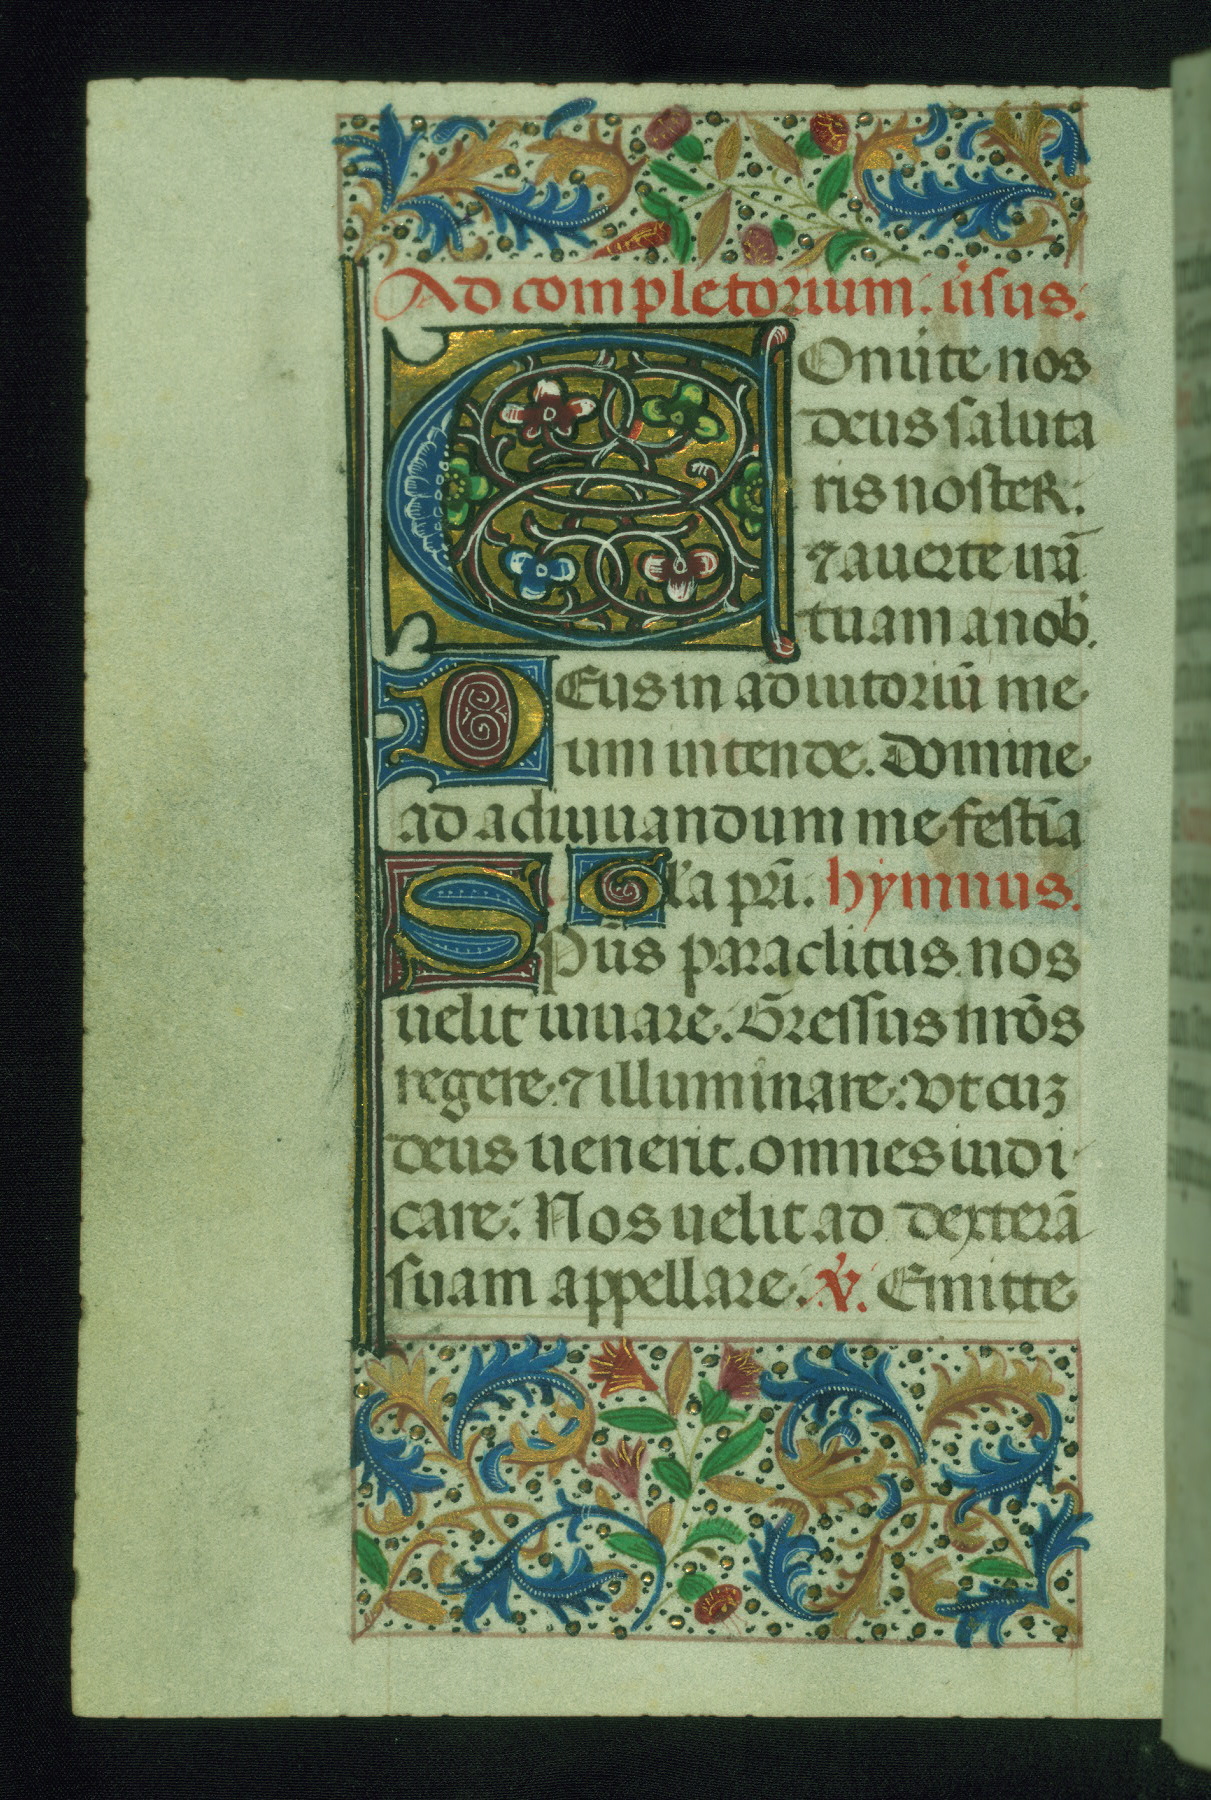 Ad completorium. ūsus.
COnūte nos
deus saluta
ris noster.
⁊ auerte irā
tuam a nob̾.
DEus in adiutoriū me
um intende. Domine
ad adiuuandum me festīa
Gl'a pr̄i. hymnus.
SPūs paraclitus nos
uelit iuuare. Gressus nr̄os
regere ⁊ illuminare: vt cuꝫ
deus uenerit. omnes iudi
care: Nos uelit ad dexterā
suam appellare. ℣. Emitte